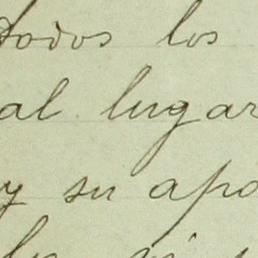 todos los
al lugar
y su apo